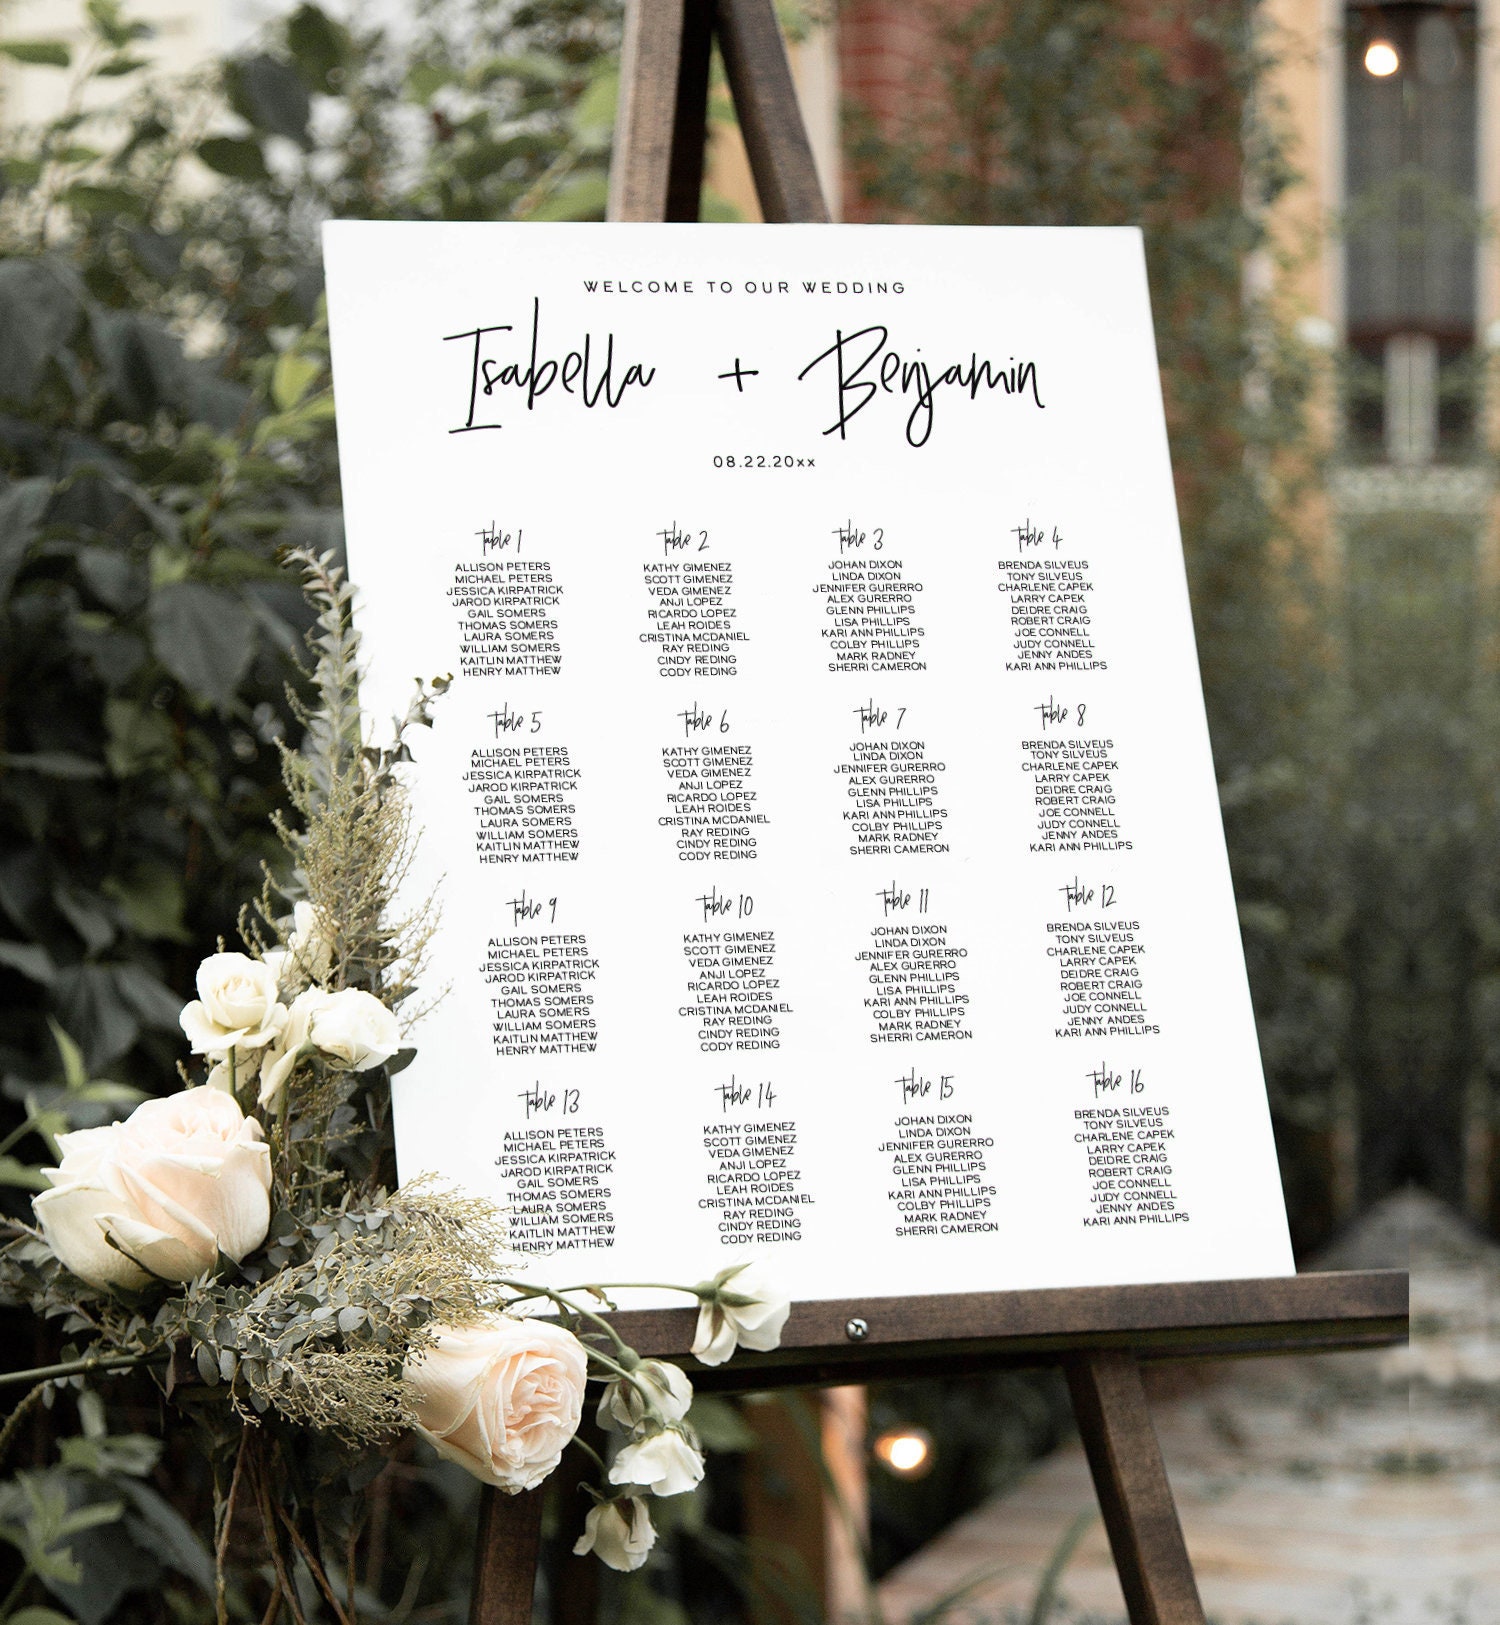 WELCOME TO OUR WEDDING
Isabella + Benjamin
08.22.20xx
Table 1
ALLISON PETERS
MICHAEL PETERS
JESSICA KIRPATRICK
JAROD KIRPATRICK
GAIL SOMERS
THOMAS SOMERS
LAURA SOMERS
WILLIAM SOMERS
KAITLIN MATTHEW
HENRY MATTHEW
Table 2
KATHY GIMENEZ
SCOTT GIMENEZ
VEDA GIMENEZ
ANJI LOPEZ
RICARDO LOPEZ
LEAH ROIDES
CRISTINA MCDANIEL
RAY REDING
CINDY REDING
CODY REDING
Table 3
JOHAN DIXON
LINDA DIXON
JENNIFER GURERRO
ALEX GURERRO
GLENN PHILLIPS
LISA PHILLIPS
KARI ANN PHILLIPS
COLBY PHILLIPS
MARK RADNEY
SHERRI CAMERON
Table 4
BRENDA SILVEUS
TONY SILVEUS
CHARLENE CAPEK
LARRY CAPEK
DEIDRE CRAIG
ROBERT CRAIG
JOE CONNELL
JUDY CONNELL
JENNY ANDES
KARI ANN PHILLIPS
Table 5
ALLISON PETERS
MICHAEL PETERS
JESSICA KIRPATRICK
JAROD KIRPATRICK
GAIL SOMERS
THOMAS SOMERS
LAURA SOMERS
WILLIAM SOMERS
KAITLIN MATTHEW
HENRY MATTHEW
Table 6
KATHY GIMENEZ
SCOTT GIMENEZ
VEDA GIMENEZ
ANJI LOPEZ
RICARDO LOPEZ
LEAH ROIDES
CRISTINA MCDANIEL
RAY REDING
CINDY REDING
CODY REDING
Table 7
JOHAN DIXON
LINDA DIXON
JENNIFER GURERRO
ALEX GURERRO
GLENN PHILLIPS
LISA PHILLIPS
KARI ANN PHILLIPS
COLBY PHILLIPS
MARK RADNEY
SHERRI CAMERON
Table 8
BRENDA SILVEUS
TONY SILVEUS
CHARLENE CAPEK
LARRY CAPEK
DEIDRE CRAIG
ROBERT CRAIG
JOE CONNELL
JUDY CONNELL
JENNY ANDES
KARI ANN PHILLIPS
Table 9
ALLISON PETERS
MICHAEL PETERS
JESSICA KIRPATRICK
JAROD KIRPATRICK
GAIL SOMERS
THOMAS SOMERS
LAURA SOMERS
WILLIAM SOMERS
KAITLIN MATTHEW
HENRY MATTHEW
Table 10
KATHY GIMENEZ
SCOTT GIMENEZ
VEDA GIMENEZ
ANJI LOPEZ
RICARDO LOPEZ
LEAH ROIDES
CRISTINA MCDANIEL
RAY REDING
CINDY REDING
CODY REDING
Table 11
JOHAN DIXON
LINDA DIXON
JENNIFER GURERRO
ALEX GURERRO
GLENN PHILLIPS
LISA PHILLIPS
KARI ANN PHILLIPS
COLBY PHILLIPS
MARK RADNEY
SHERRI CAMERON
Table 12
BRENDA SILVEUS
TONY SILVEUS
CHARLENE CAPEK
LARRY CAPEK
DEIDRE CRAIG
ROBERT CRAIG
JOE CONNELL
JUDY CONNELL
JENNY ANDES
KARI ANN PHILLIPS
Table 13
ALLISON PETERS
MICHAEL PETERS
JESSICA KIRPATRICK
JAROD KIRPATRICK
GAIL SOMERS
THOMAS SOMERS
LAURA SOMERS
WILLIAM SOMERS
KAITLIN MATTHEW
HENRY MATTHEW
Table 14
KATHY GIMENEZ
SCOTT GIMENEZ
VEDA GIMENEZ
ANJI LOPEZ
RICARDO LOPEZ
LEAH ROIDES
CRISTINA MCDANIEL
RAY REDING
CINDY REDING
CODY REDING
Table 15
JOHAN DIXON
LINDA DIXON
JENNIFER GURERRO
ALEX GURERRO
GLENN PHILLIPS
LISA PHILLIPS
KARI ANN PHILLIPS
COLBY PHILLIPS
MARK RADNEY
SHERRI CAMERON
Table 16
BRENDA SILVEUS
TONY SILVEUS
CHARLENE CAPEK
LARRY CAPEK
DEIDRE CRAIG
ROBERT CRAIG
JOE CONNELL
JUDY CONNELL
JENNY ANDES
KARI ANN PHILLIPS